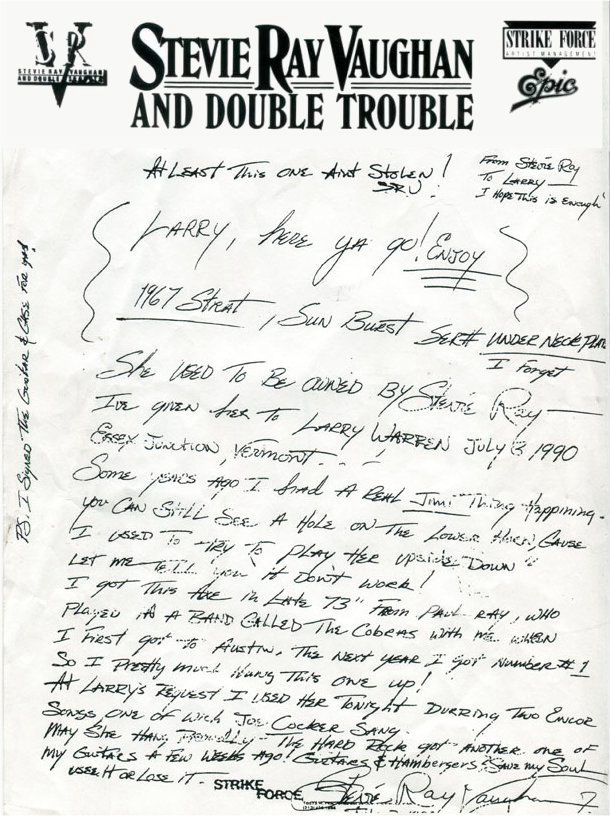 SRV
STEVIE RAY VAUGHAN
AND DOUBLE TROUBLE
STEVIE RAY VAUGHAN
AND DOUBLE TROUBLE
STRIKE FORCE
ARTIST MANAGEMENT
Epic
At Least This one Aint Stolen!
SRV
From Stevie Ray
To Larry
I Hope This is Enough
Larry, here ya go! Enjoy
1967 Strat, Sun Burst Ser# under neck plate
I forget
She used to Be owned By Stevie Ray
I've given her to Larry Warren July 1990
Essex Junction, Vermont...
Some years ago I had a Real Jimi Thing Happining.
you can still see a hole on the lower horn, cause
I used to try to play her upside down
Let me tell you it don't work!
I got this axe in Late 73" From Paul Ray, who
Played in a band called The Cobras with me when
I first got to Austin. The next year I got number #1
So I pretty much hung this one up!
At Larry's Request I used her Tonight Durring Two Encor
Songs, one of wich Joe Cocker Sang.
May She Hang - The Hard Rock got another one of
my guitars a few weeks ago! Guitars & Hambergers? Save my Soul
use it or lose it.
Stevie Ray Vaughan
STRIKE
FORCE
P.S. I Signed The Guitar & Case for you!